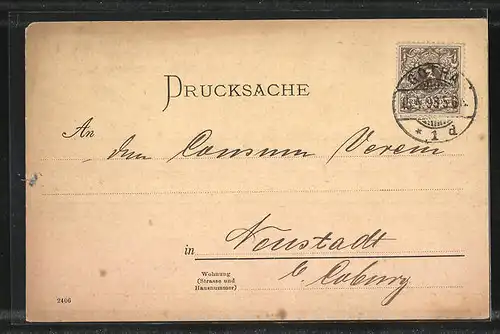 DRUCKSACHE
GOTHA
* 1 d
An
den Consum Verein
in Neustadt
b. Coburg
Wohnung
(Strasse und
Hausnummer)
2406